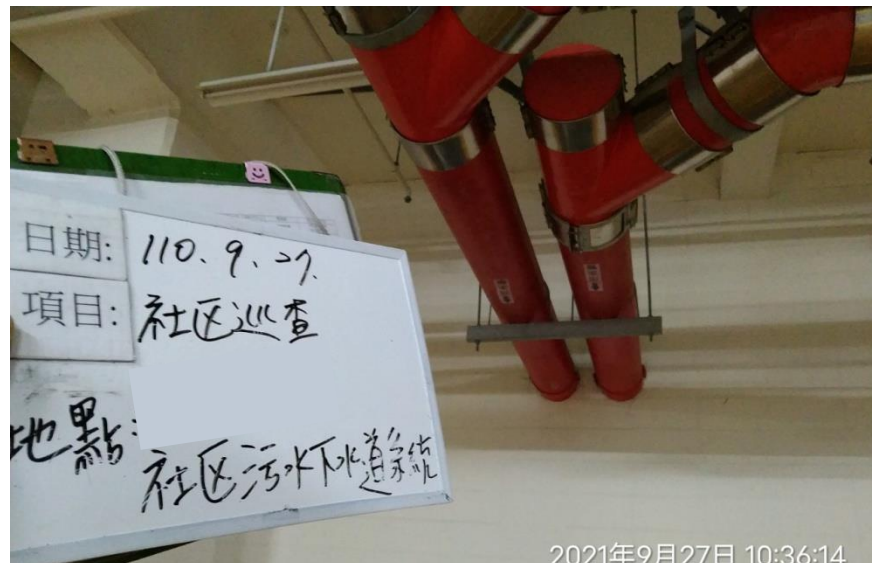 日期: 110、9、27.
項目: 社区巡查
地點:
社区污水下水道系統
2021年9月27日 10:36:14